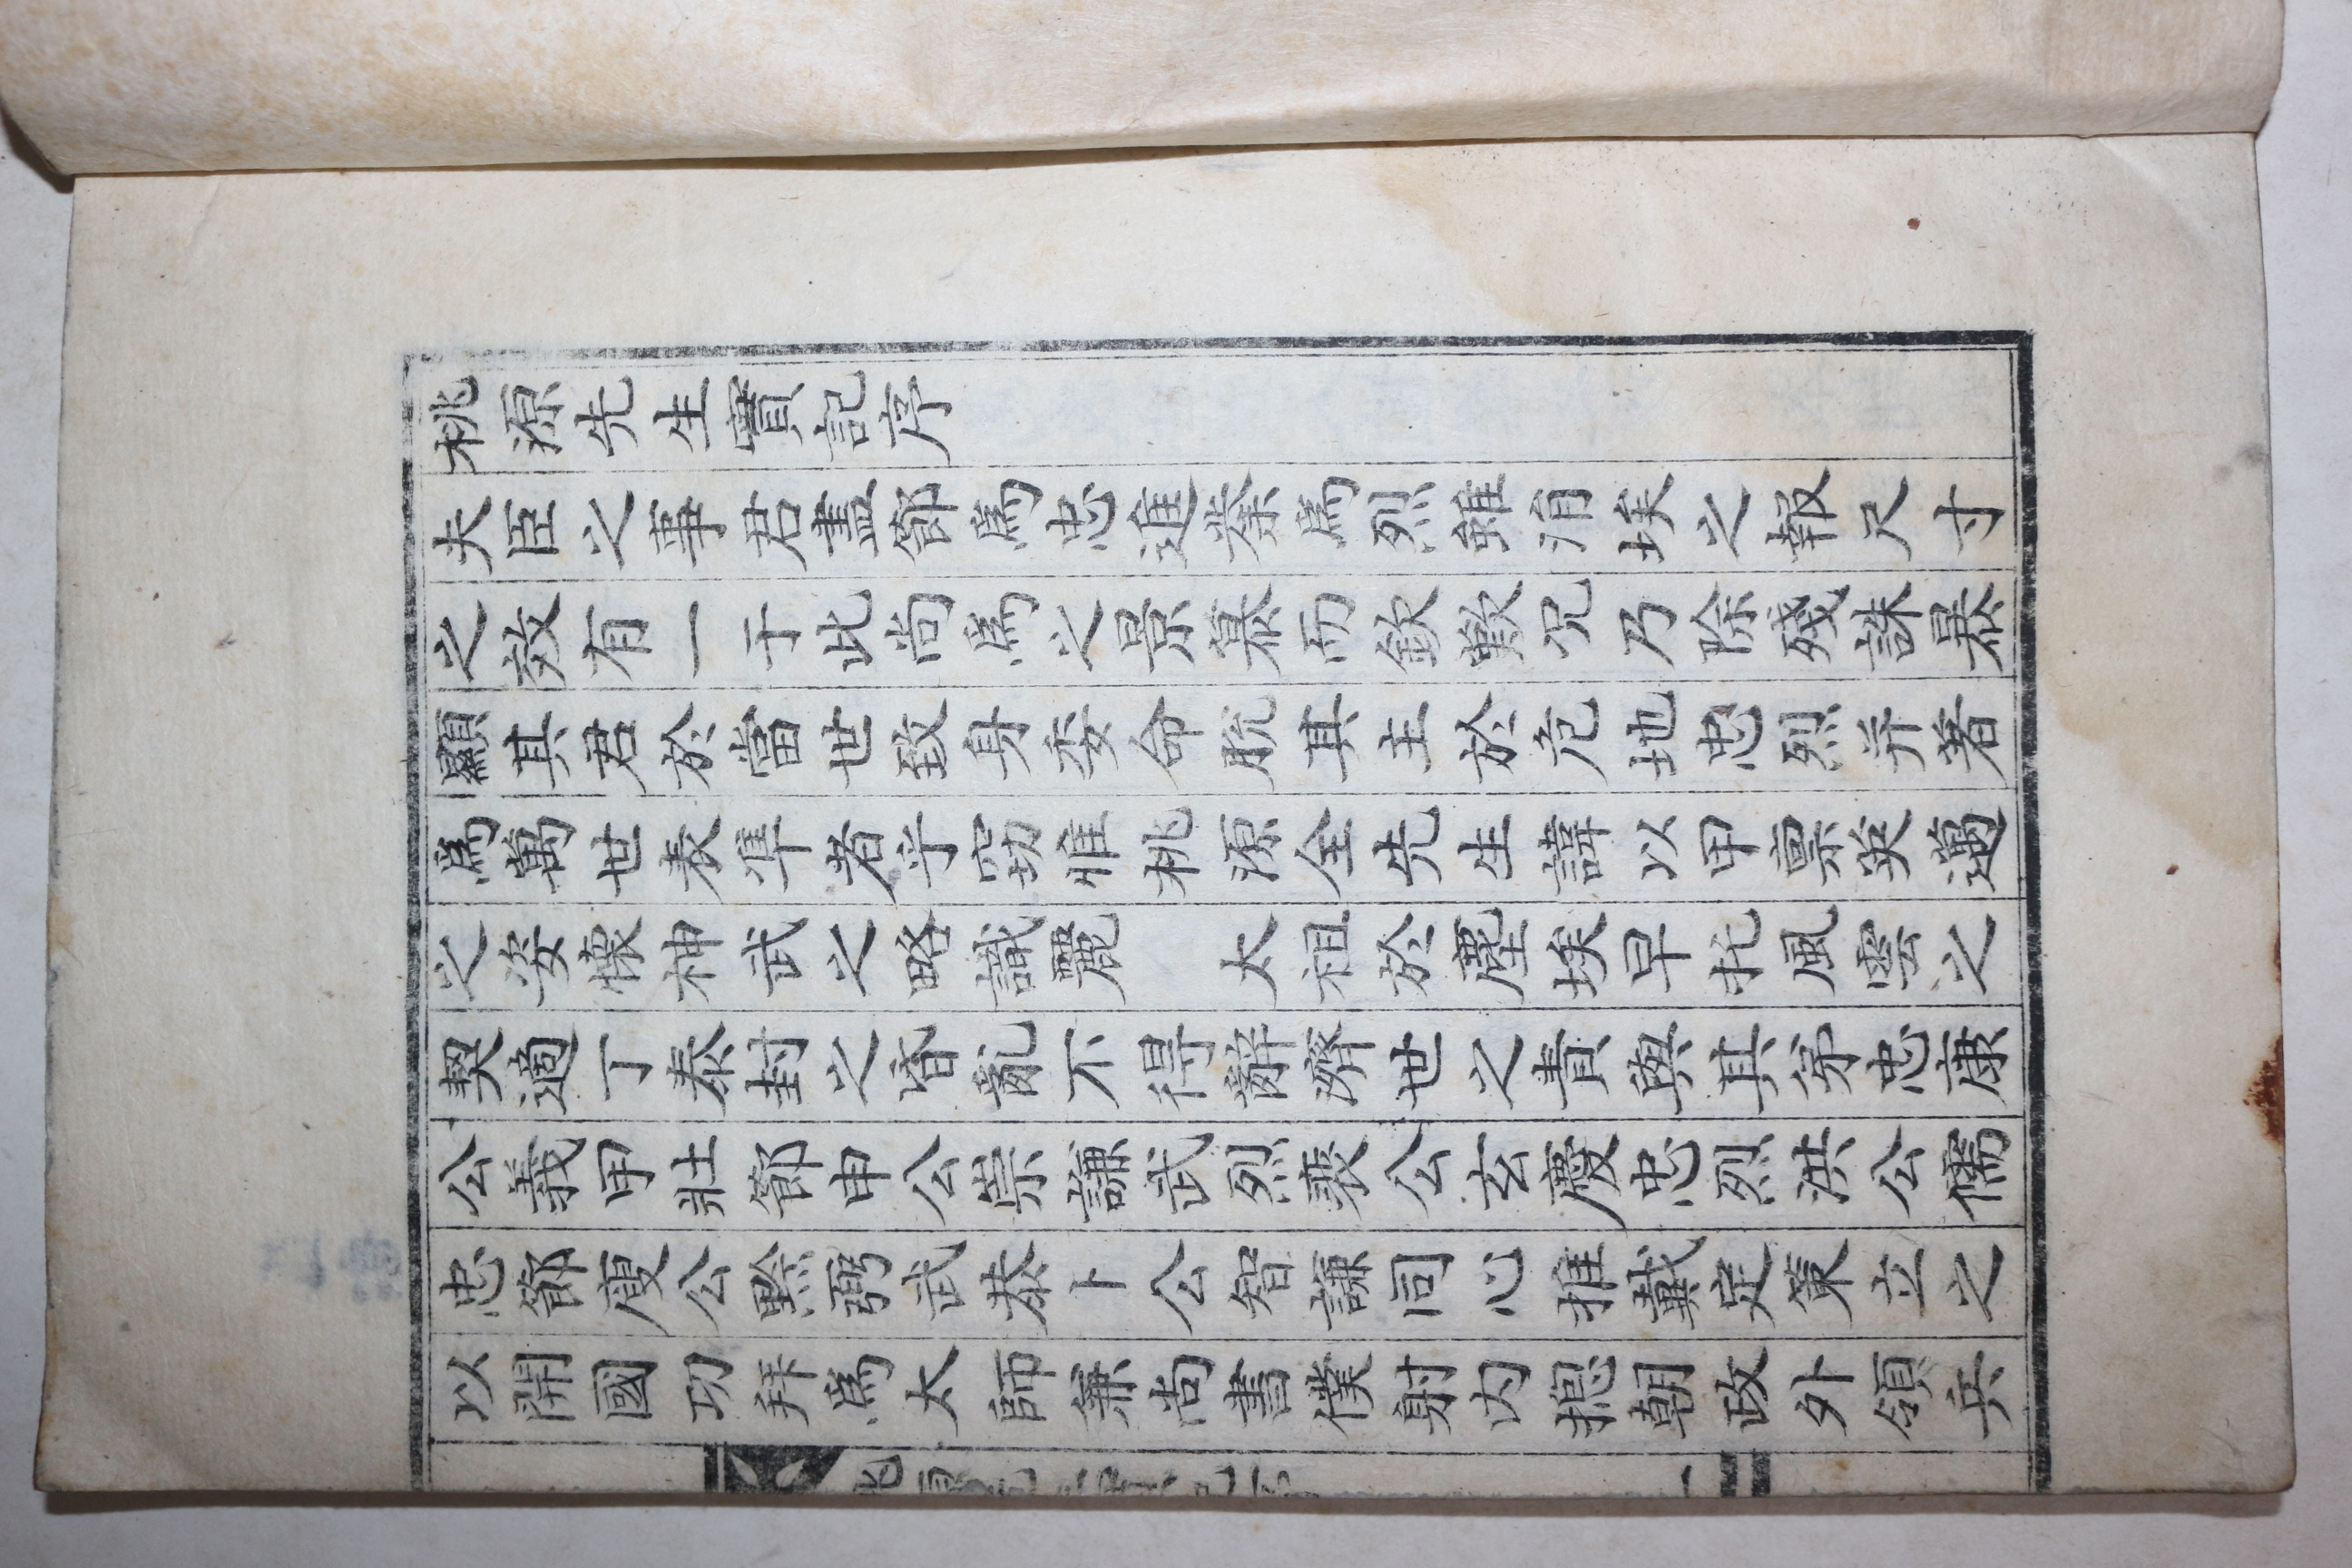 桃源先生實記序
夫臣之事君盡節爲忠進榮爲烈雖涓埃之報尺寸
之效有一于此尚爲之景慕而欽歎况乃除殘誅暴
顯其君於當世致身委命脫其主於危地忠烈并著
爲萬世表準者乎竊惟桃源全先生諱以甲禀英邁
之姿懷神武之略識麗 太祖於塵埃早托風雲之
契適丁泰封之昏亂不得辭濟世之責與其弟忠康
公義甲壯節申公崇謙武烈裴公玄慶忠烈洪公儒
忠節庾公黔弼武恭卜公智謙同心推戴定策立之
以開國功拜爲太師兼尚書僕射内摠朝政外領兵